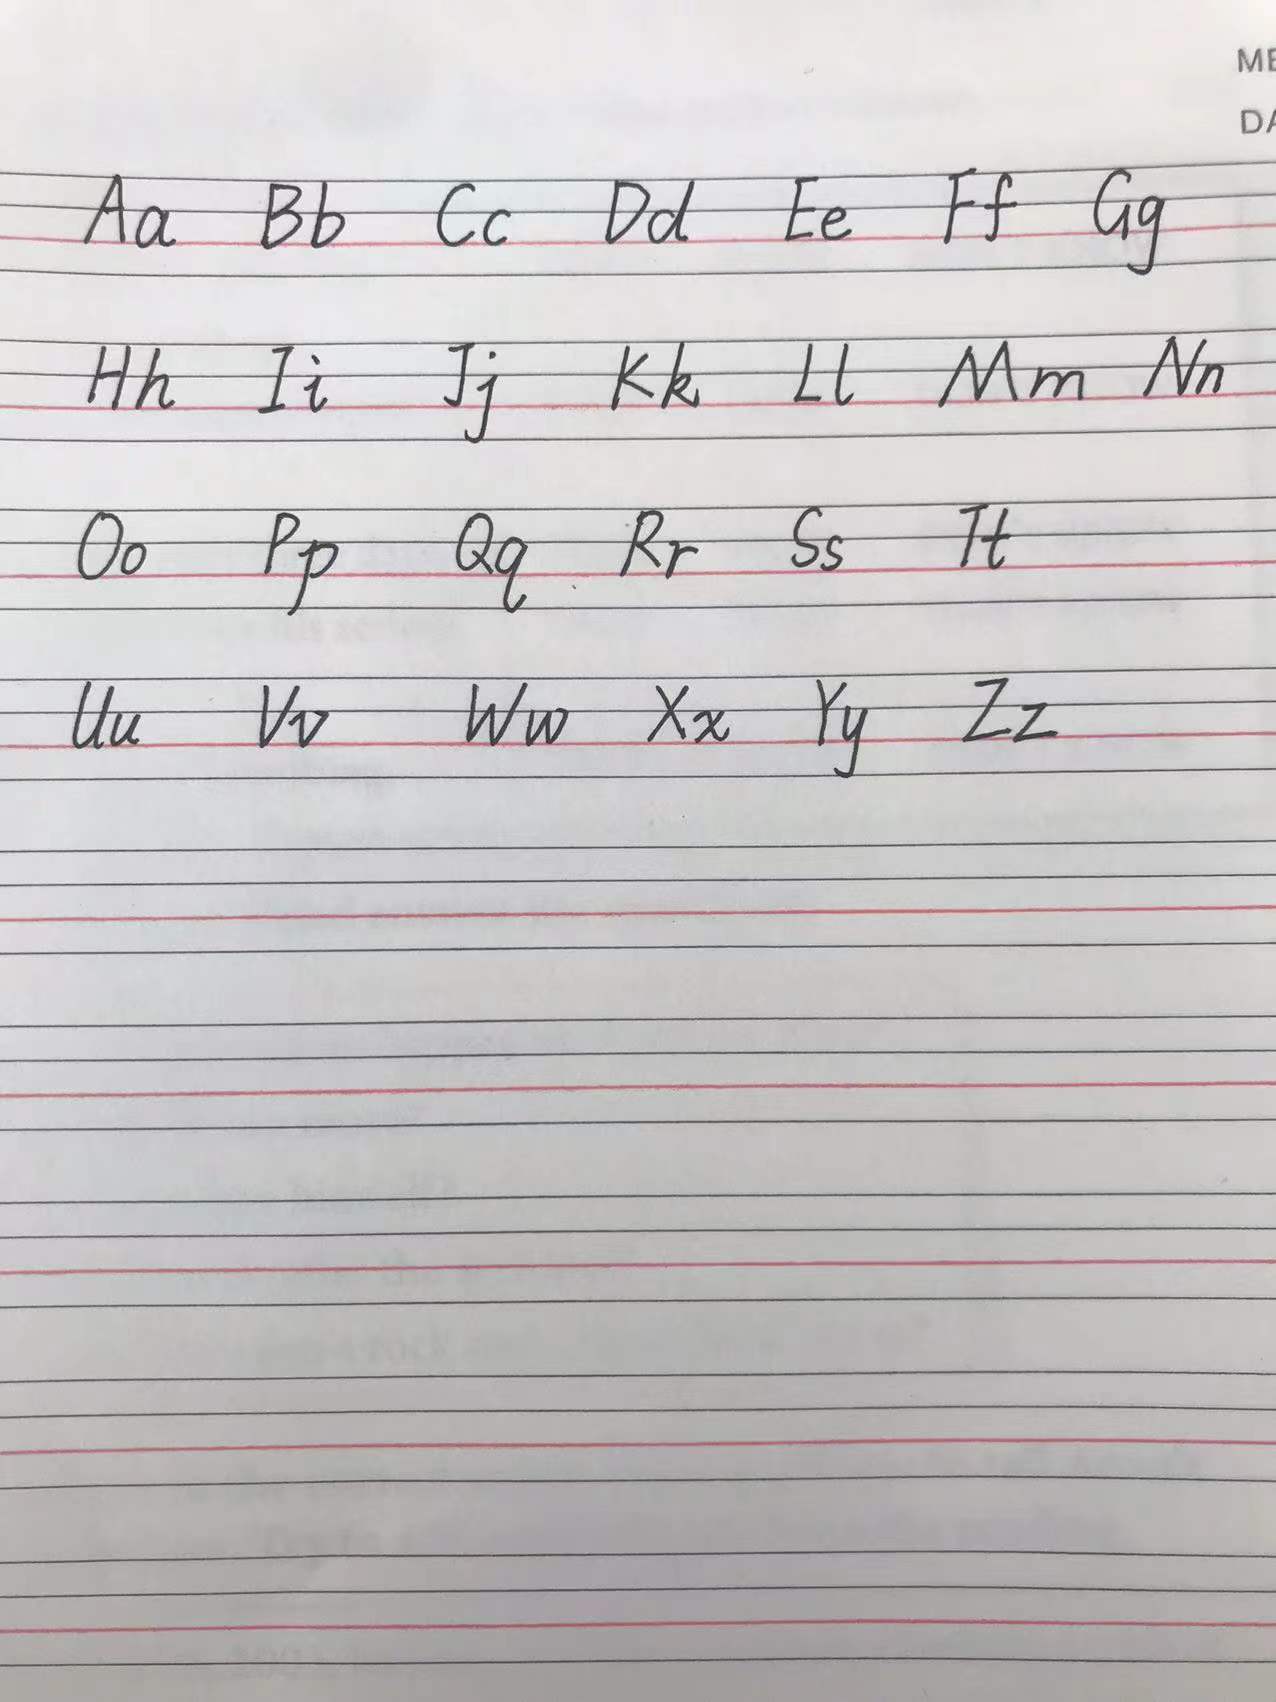 ME
DA
Aa Bb Cc Dd Ee Ff Gg
Hh Ii Jj Kk Ll Mm Nn
Oo Pp Qq Rr Ss Tt
Uu Vv Ww Xx Yy Zz